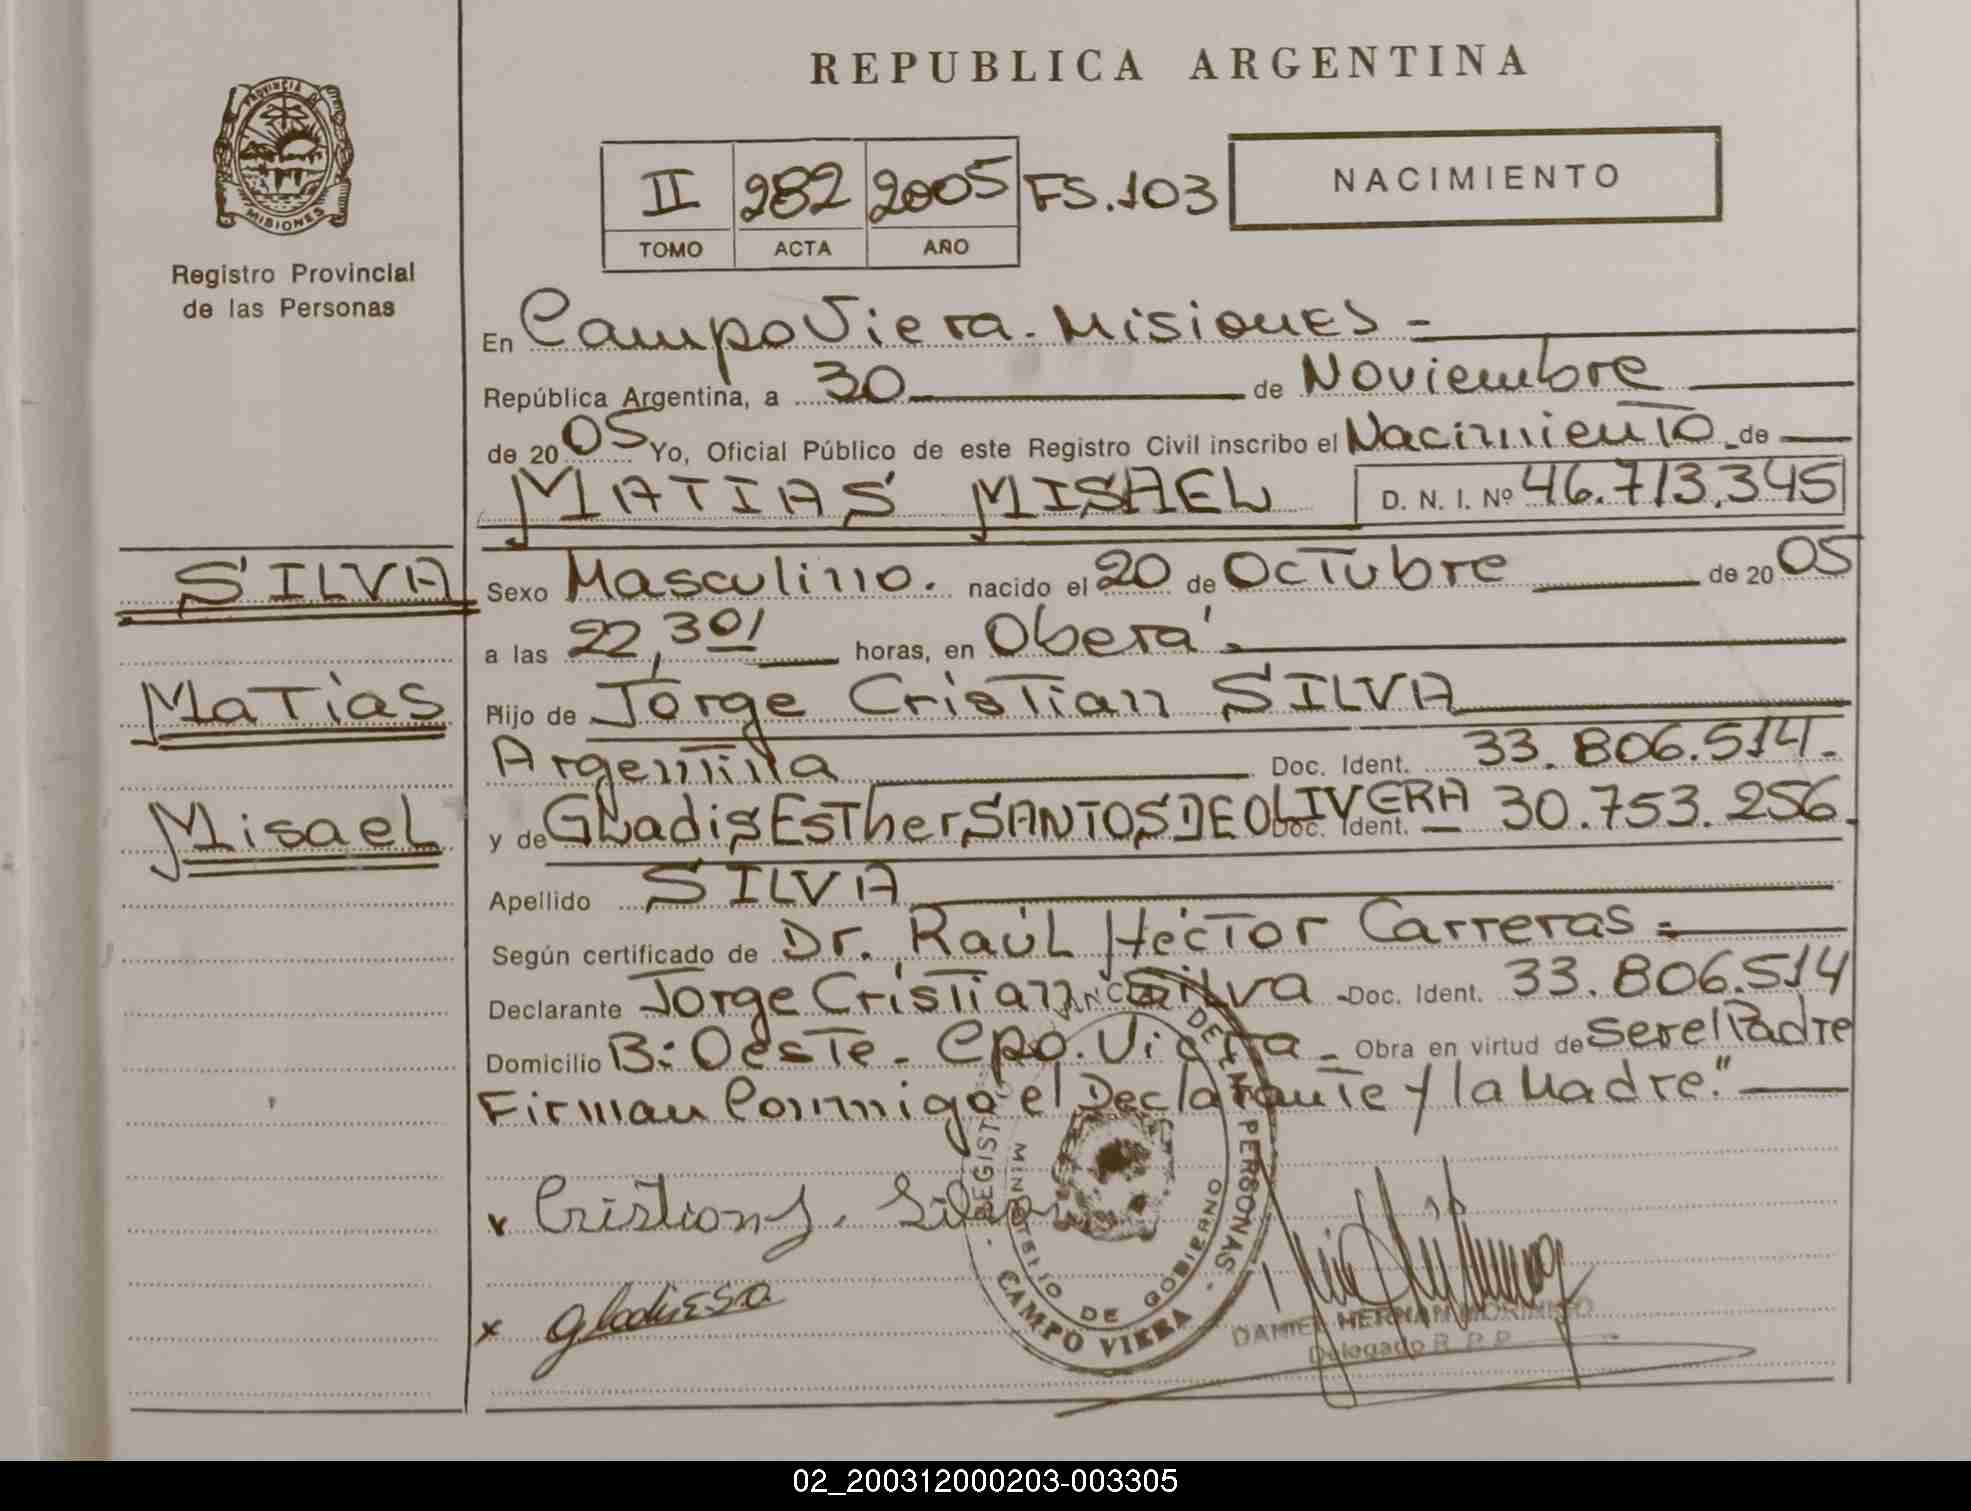 REPUBLICA ARGENTINA
PROVINCIA DE
MISIONES
Registro Provincial
de las Personas
II 282 2005 FS.103
TOMO ACTA AÑO
NACIMIENTO
En Campo Viera - Misiones -
República Argentina, a 30 de Noviembre
de 2005 Yo, Oficial Público de este Registro Civil inscribo el Nacimiento de
MATIAS MISAEL D. N. I. Nº 46.713.345
SILVA
Matias
Misael
Sexo Masculino. nacido el 20 de Octubre de 2005
a las 22,30 horas, en Oberá.
Hijo de Jorge Cristian SILVA
Argentina Doc. Ident. 33.806.514.-
y de Gladis Esther SANTOS DE OLIVERA Doc. Ident. 30.753.256.
Apellido SILVA
Según certificado de Dr. Raúl Héctor Carreras =
Declarante Jorge Cristian Silva - Doc. Ident. 33.806.514
Domicilio B: Oeste - Cpo. Viera - Obra en virtud de ser el Padre
Firman Conmigo el Declarante y la Madre."
x Cristian J. Silva
x
REGISTRO PROVINCIAL DE LAS PERSONAS
MINISTERIO DE GOBIERNO
CAMPO VIERA
DANIEL HERNAN MORINIGO
Delegado R. P. P.
02_200312000203-003305